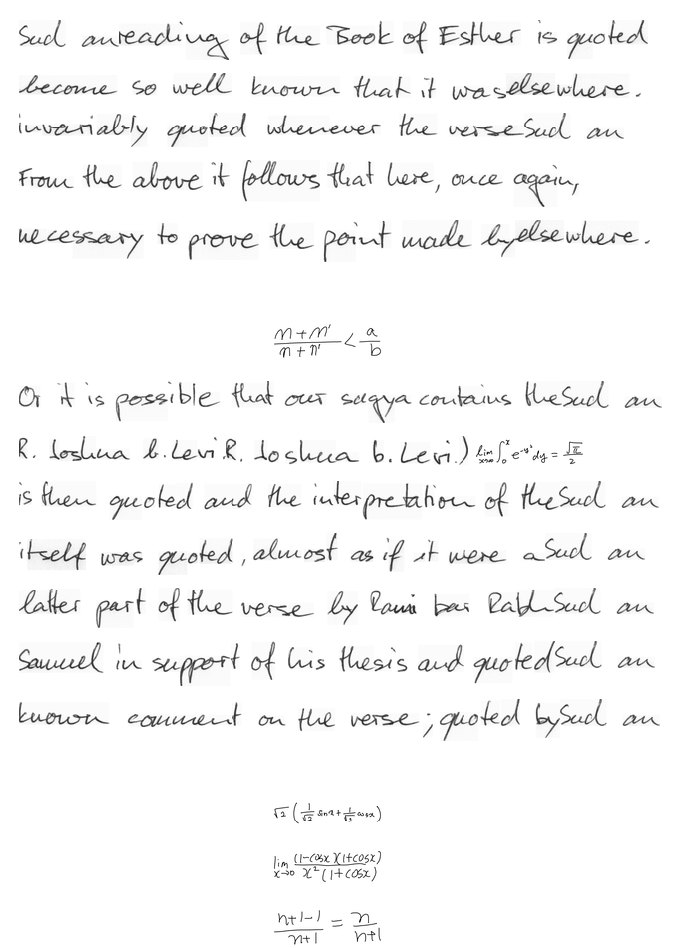 Sud anreading of the Book of Esther is quoted
become so well known that it waselsewhere.
invariably quoted whenever the verseSud an
From the above it follows that here, once again,
necessary to prove the point made byelsewhere.
\frac{m+m'}{n+n'} < \frac{a}{b}
Or it is possible that our sugya contains theSud an
R. Joshua b. Levi.R. Joshua b. Levi.) \lim_{x \to \infty} \int_0^x e^{-y^2} dy = \frac{\sqrt{\pi}}{2}
is then quoted and the interpretation of theSud an
itself was quoted, almost as if it were aSud an
latter part of the verse by Rami bar RabhSud an
Samuel in support of his thesis and quotedSud an
known comment on the verse; quoted bySud an
\sqrt{2} ( \frac{1}{\sqrt{2}} \sin x + \frac{1}{\sqrt{2}} \cos x )
\lim_{x \to 0} \frac{(1-\cos x)(1+\cos x)}{x^2(1+\cos x)}
\frac{n+1-1}{n+1} = \frac{n}{n+1}